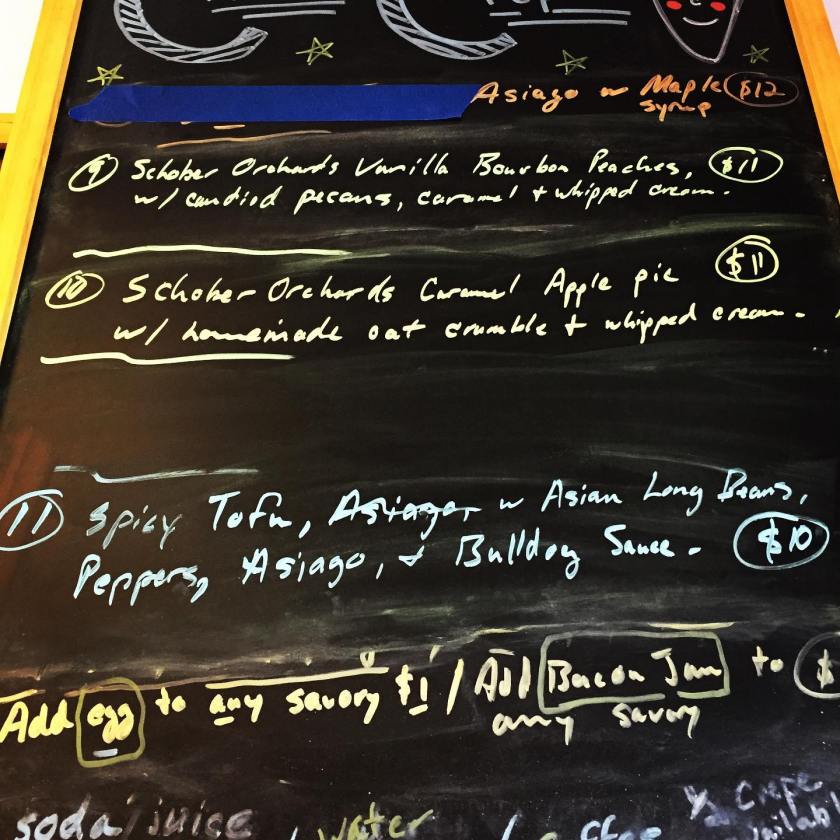 Asiago w Maple $12
syrup
9 Schober Orchards Vanilla Bourbon Peaches, $11
w/ candied pecans, caramel + whipped cream.
10 Schober Orchards Caramel Apple pie $11
w/ homemade oat crumble + whipped cream.
11 Spicy Tofu, Asiago w Asian Long Beans,
Peppers, Asiago, + Bulldog Sauce. $10
Add egg to any savory $1 / Add Bacon Jam to $
any savory
soda/juice / water / coffee ½ Crepe